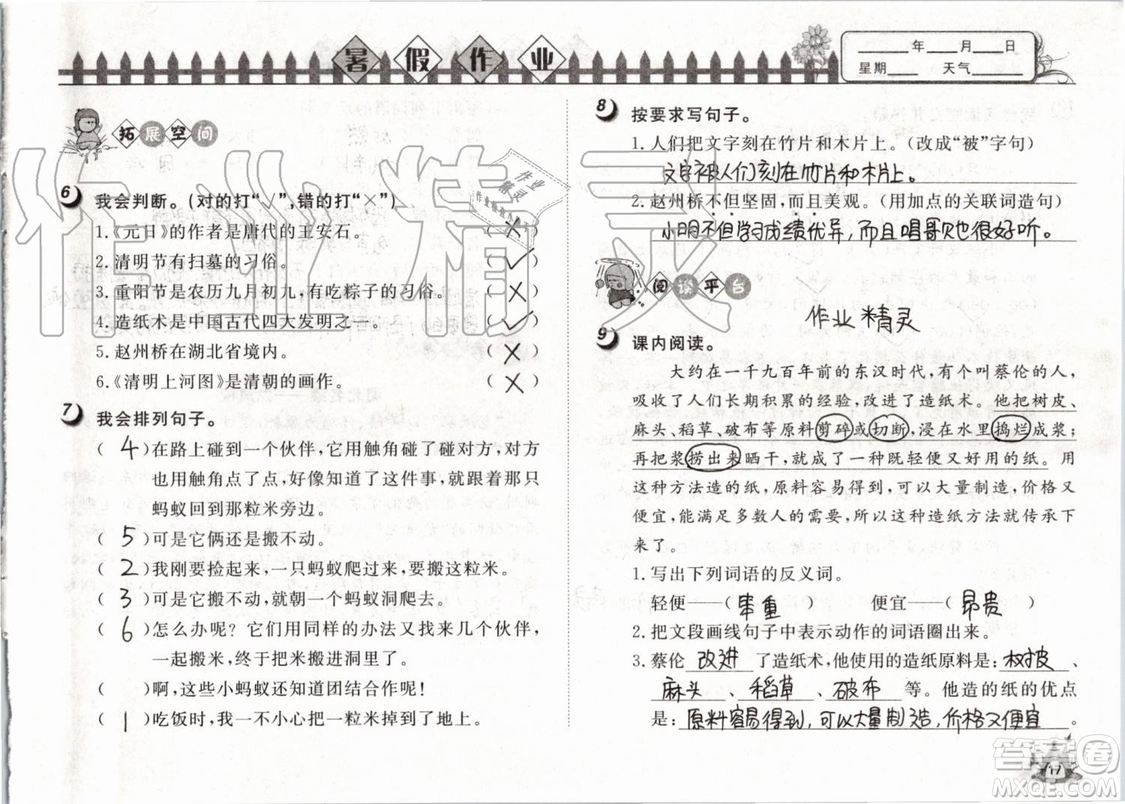 暑假作业
____年____月____日
星期____ 天气____
拓展空间
6 我会判断。(对的打“√”,错的打“×”)
1.《元日》的作者是唐代的王安石。 ( )
2.清明节有扫墓的习俗。 (✓)
3.重阳节是农历九月初九,有吃粽子的习俗。 (×)
4.造纸术是中国古代四大发明之一。 (✓)
5.赵州桥在湖北省境内。 (×)
6.《清明上河图》是清朝的画作。 (×)
7 我会排列句子。
(4)在路上碰到一个伙伴,它用触角碰了碰对方,对方
也用触角点了点,好像知道了这件事,就跟着那只
蚂蚁回到那粒米旁边。
(5)可是它俩还是搬不动。
(2)我刚要捡起来,一只蚂蚁爬过来,要搬这粒米。
(3)可是它搬不动,就朝一个蚂蚁洞爬去。
(6)怎么办呢?它们用同样的办法又找来几个伙伴,
一起搬米,终于把米搬进洞里了。
( )啊,这些小蚂蚁还知道团结合作呢!
(1)吃饭时,我一不小心把一粒米掉到了地上。
8 按要求写句子。
1.人们把文字刻在竹片和木片上。(改成“被”字句)
文字被人们刻在竹片和木片上。
2.赵州桥不但坚固,而且美观。(用加点的关联词造句)
小明不但学习成绩优异,而且唱歌也很好听。
阅读平台
作业精灵
9 课内阅读。
大约在一千九百年前的东汉时代,有个叫蔡伦的人,
吸收了人们长期积累的经验,改进了造纸术。他把树皮、
麻头、稻草、破布等原料剪碎或切断,浸在水里捣烂成浆;
再把浆捞出来晒干,就成了一种既轻便又好用的纸。用
这种方法造的纸,原料容易得到,可以大量制造,价格又
便宜,能满足多数人的需要,所以这种造纸方法就传承下
来了。
1.写出下列词语的反义词。
轻便——(笨重) 便宜——(昂贵)
2.把文段画线句子中表示动作的词语圈出来。
3.蔡伦 改进 了造纸术,他使用的造纸原料是: 树皮 、
麻头 、 稻草 、 破布 等。他造的纸的优点
是: 原料容易得到,可以大量制造,价格又便宜 。
17
作业精灵
答案圈
MXQE.COM